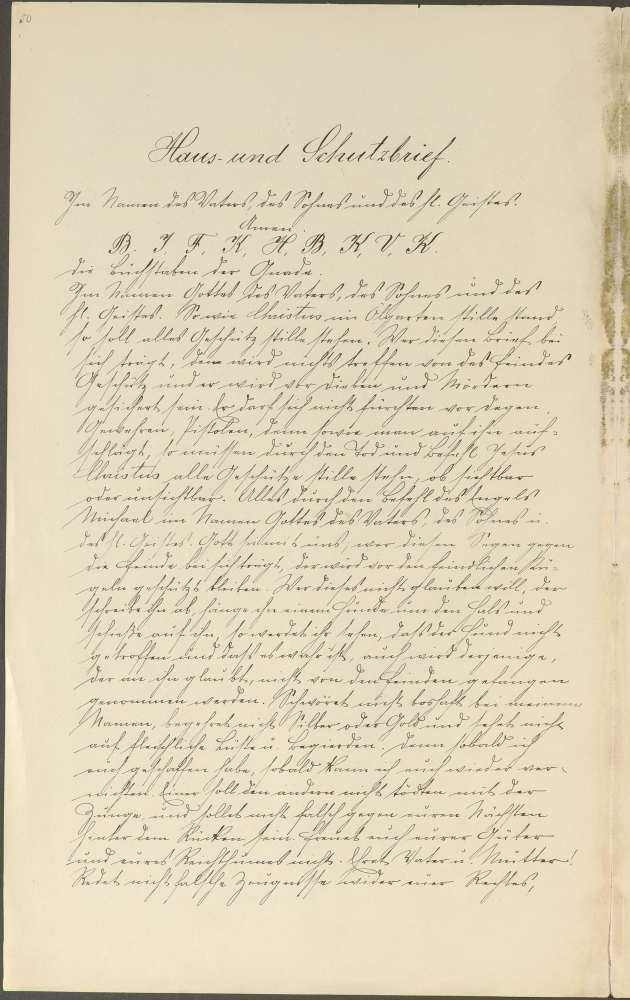 50
Haus- und Schutzbrief.
Im Namen des Vaters, des Sohnes und des hl. Geistes.
Amen.
B. I. F. K. H. B. K. V. K.
die Buchstaben der Gnade.
Im Namen Gottes des Vaters, des Sohnes und des
hl. Geistes. So wie Christus im Ölgarten stille stand,
so soll alles Geschütz stille stehen. Wer diesen Brief bei
sich trägt, dem wird nichts treffen von des Feindes
Geschütz und er wird vor Dieben und Mördern
gesichert sein. Er darf sich nicht fürchten vor Degen,
Gewehren, Pistolen, denn sowie man auf ihn auf-
schlägt, so müssen durch den Tod und Befehl Jesus
Christus alle Geschütze stille stehn, ob sichtbar
oder unsichtbar. Alles durch den Befehl des Engels
Michael im Namen Gottes des Vaters, des Sohnes u.
des hl. Geistes. Gott sei mit uns, wer diesen Segen gegen
die Feinde bei sich trägt, der wird vor den feindlichen Ku-
geln geschützt bleiben. Wer dieses nicht glauben will, der
schreibe ihn ab, hänge ihn einem Hunde um den Hals und
schieße auf ihn, so werdet ihr sehen, daß der Hund nicht
getroffen und daß es wahr ist, auch wird derjenige,
der an ihn glaubt, nicht von den Feinden gefangen
genommen werden. Schwöret nicht boshaft bei meinem
Namen, begehret nicht Silber oder Gold und sehet nicht
auf fleischliche Lüste u. Begierden; denn sobald ich
euch geschaffen habe, sobald kann ich euch wieder ver-
nichten. Einer soll den andern nicht tödten mit der
Zunge, und sollet nicht falsch gegen euren Nächsten
hinter dem Rücken sein. Freuet euch eurer Güter
und eures Reichthumes nicht. Ehret Vater u. Mutter!
Redet nicht falsche Zeugnisse wider euer Nächstes,